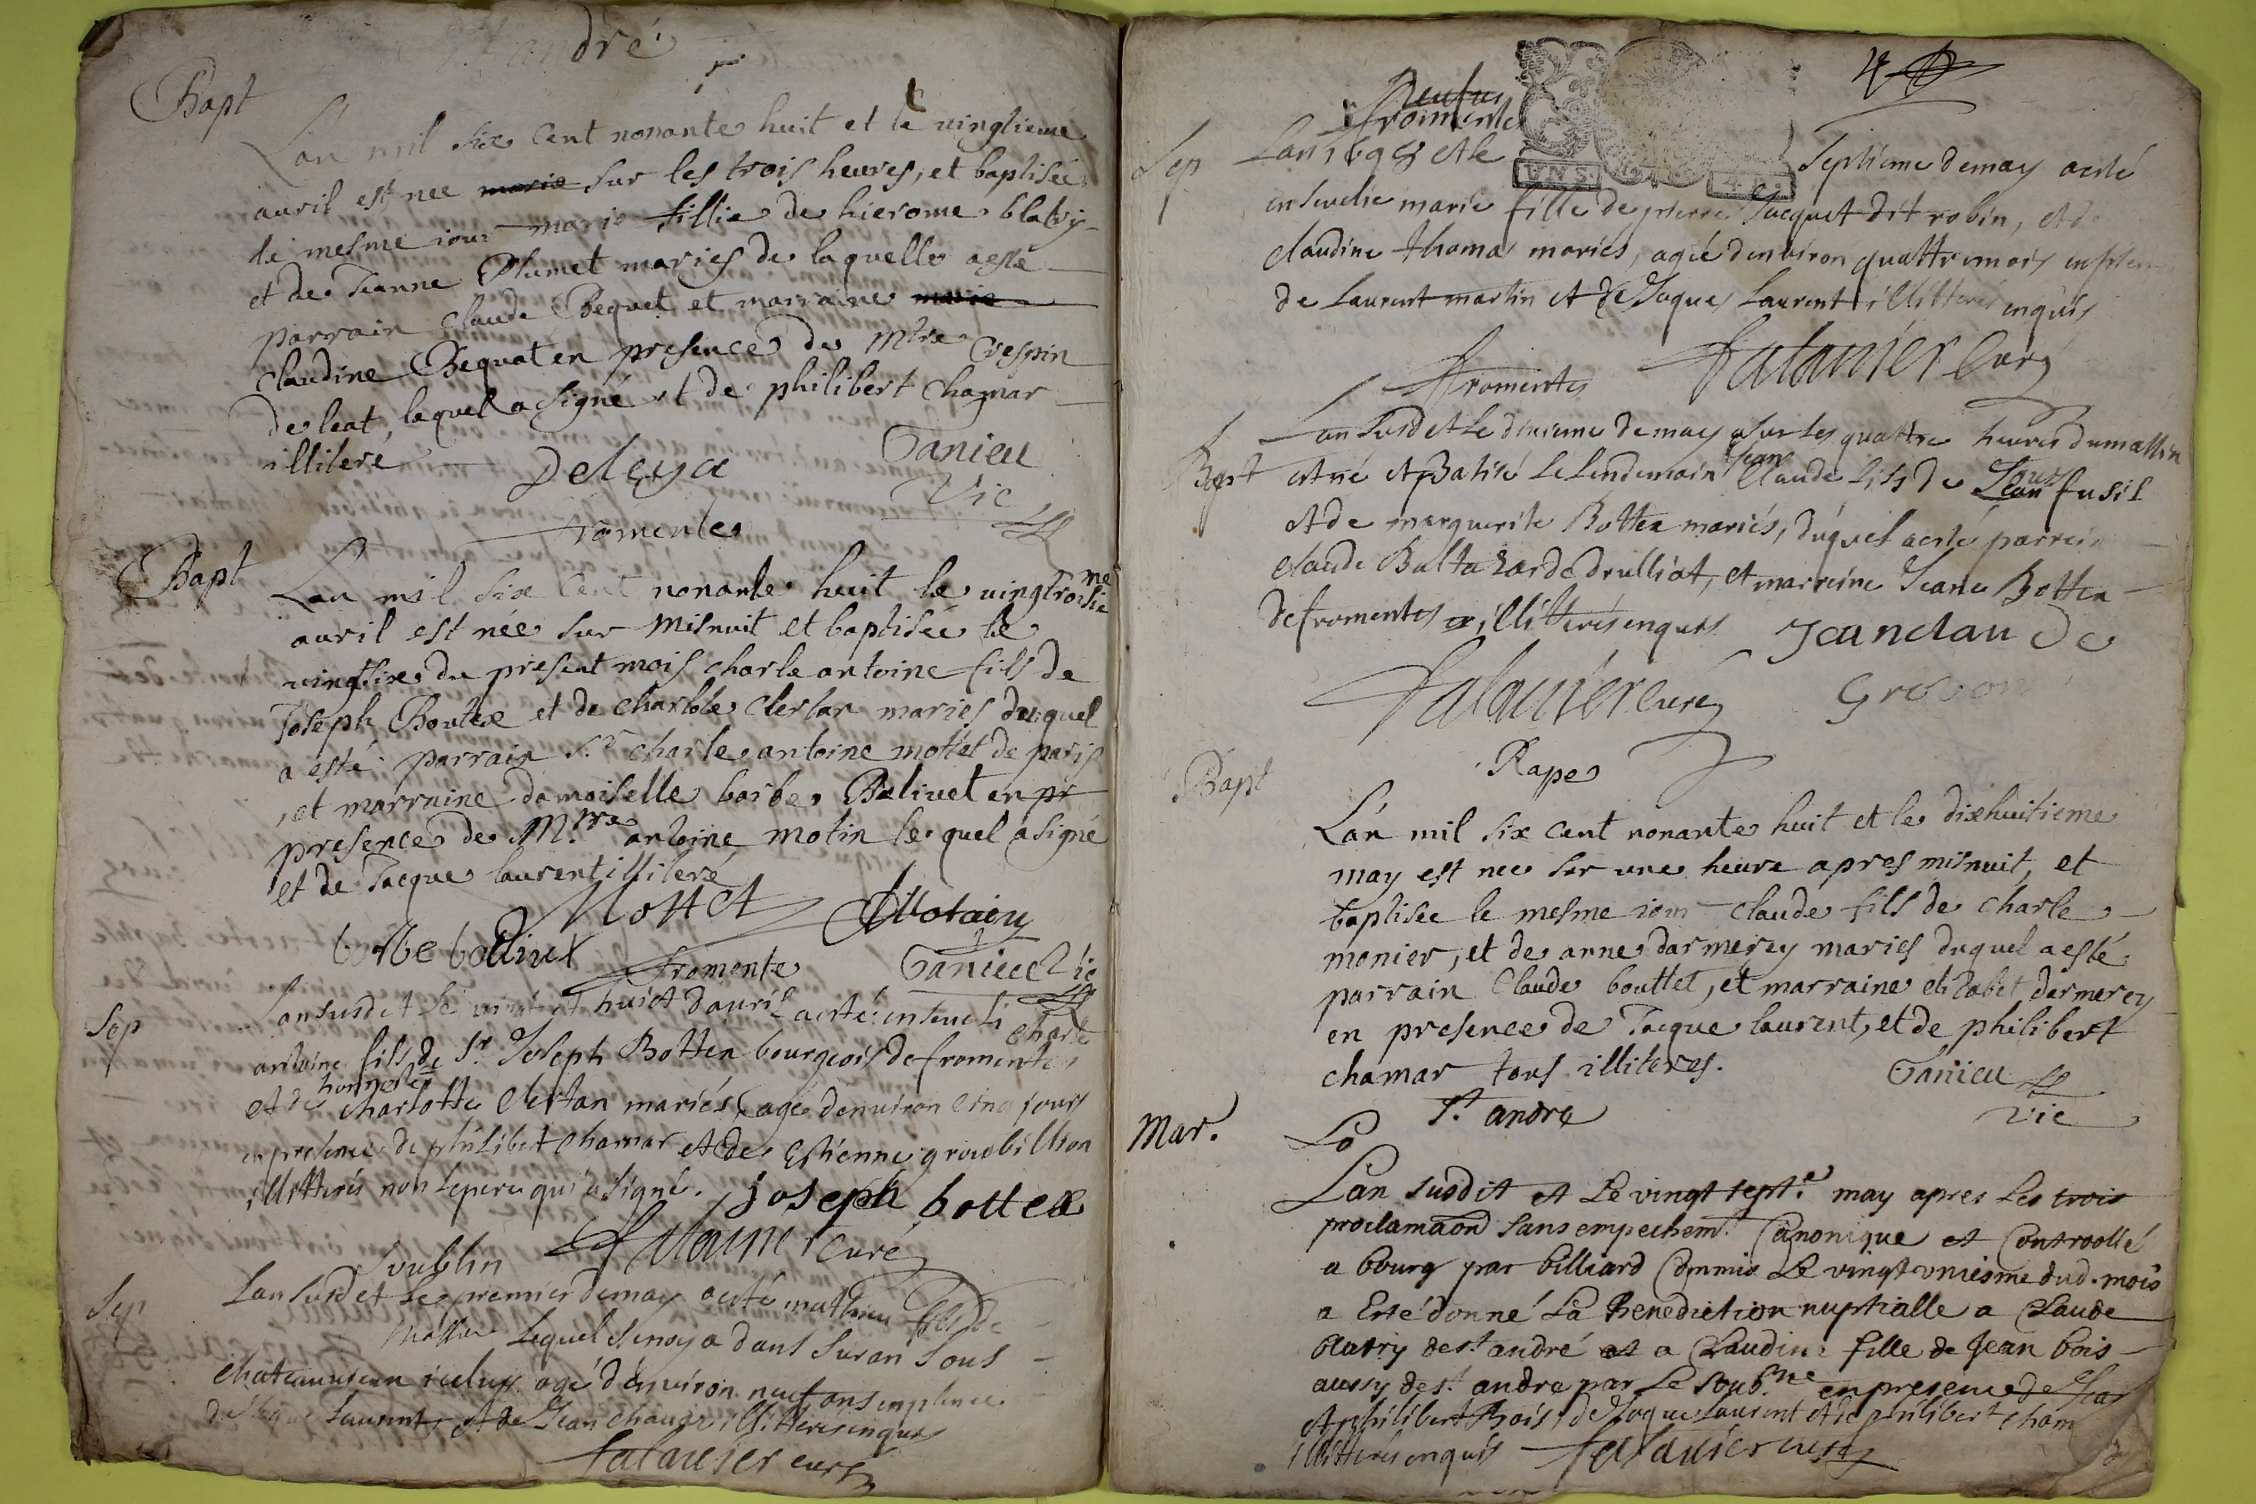 St andré
Bapt
L'an mil six cent nonante huit et le vingtieme
auril est nee marie sur les trois heures, et baptisée
le mesme iour marie fillie de hierome blatry
et de Jeanne Plumet maries de laquelle a esté
parrain Claude Bequet et marraine marie
Claudine Bequat en presence de Mtre Crespin
de leat, lequel a signé et de philibert chamar
illitere
Deleya
Tanieu
Vic
fromente
Bapt
Lan mil six cent nonante huit le vingtroisie me
auril est née sur misnuit et baptisée le
vingtsixe du present mois charle antoine fils de
Joseph Boutex et de charlote clertan maries duquel
a esté parrain Sr charle antoine mottet de paris
, et marraine damoiselle barbe Balivet en pr
presence de M.tre antoine motin le quel a signé
et de Jacque laurent illiteré
Mottet
Motain
barbe balivet
fromente
Tanieu Vic
Sep
Lan susdit le vingt et huict dauril a esté enseueli charle
antoine fils de Sr Joseph Bottex bourgeois de fromentes
Et de honneste charlotte Clertan mariés, agé denuiron cinq jours
en presence de philibert chamar et de Estienne groubillion
illitterés non le pere qui a signé. joseph bottex
falauier curé
Soublin
Sep
Lan susd et le premier de may a esté mathieu fils de
lequel se noya dans suran sous
chateauuieux iceluy agé d'enuiron neuf ans en presence
de Jaque laurent et de Jean illitteres enquis
falauier curé
4
Neufue
fromente
VN S.
4 D.
Sep
Lan 1698 et le septieme de may a esté
enseuelie marie fille de pierre Jacquet dit robin, et de
claudine thomas mariés, agée d'enuiron quattre mois en presen
de Laurent martin et de Jaques Laurent illitterés enquis
falauier Curé
fromentes
Bapt
Lan susd et le dixieme de may sur les quattre heures du mattin
est né et Batisé le lendemain Jean Claude fils de fusil
et de marguerite Bottex mariés, duquel a esté parrein
claude Baltazard de drulliat, et marreine Jeane Bottex
de fromentes illitterés enquis Jean claude
falauier curé
Grobon
Rape
Bapt
L'an mil six cent nonante huit et le dixhuitieme
may est nee sur une heure apres misnuit, et
baptisee le mesme iour claude fils de charle
monier, et de anne darmerey maries duquel a esté
parrain Claude bouttet, et marraine elizabet darmerey
en presence de Jacque laurent, et de philibert
chamar tous illiteres.
Tanieu
Vic
St andre
Mar.
Lo
Lan susdit et le vingt septe may apres les trois
proclamaōn sans empechemt. Canonique et Controollé
a bourg par billiard Commis Le vingt vniesme dud. mois
a Esté donné La Benediction nuptialle a Claude
blatry de st andré et a Claudine fille de Jean bois
aussy de st. andre par le soub.ne en presence de Jean
et philibert bois, de Jaque Laurent et de philibert cham
illitterés enquis falauier curé